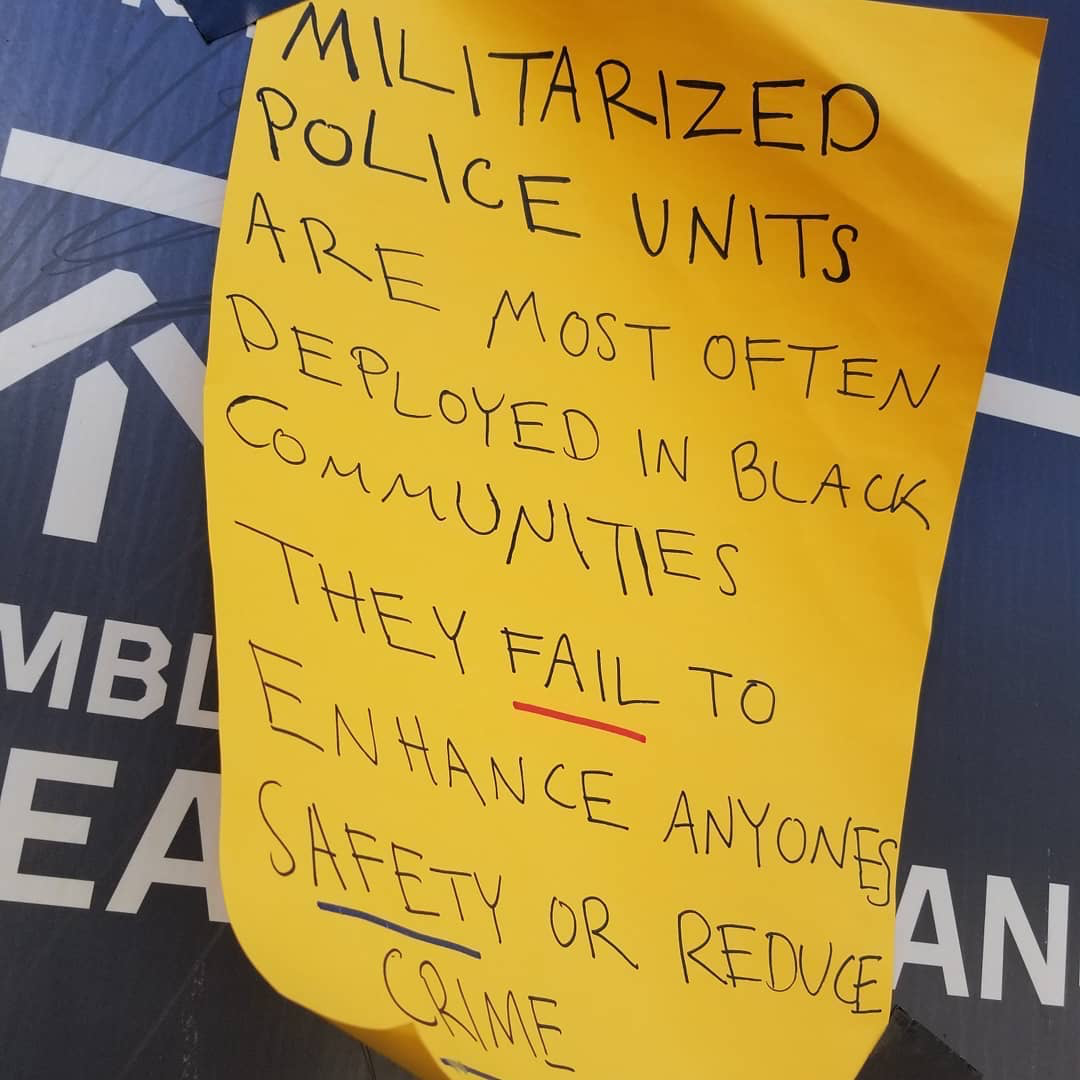 MILITARIZED
POLICE UNITS
ARE MOST OFTEN
DEPLOYED IN BLACK
COMMUNITIES
THEY FAIL TO
ENHANCE ANYONES
SAFETY OR REDUCE
CRIME
MBL
EA
AN